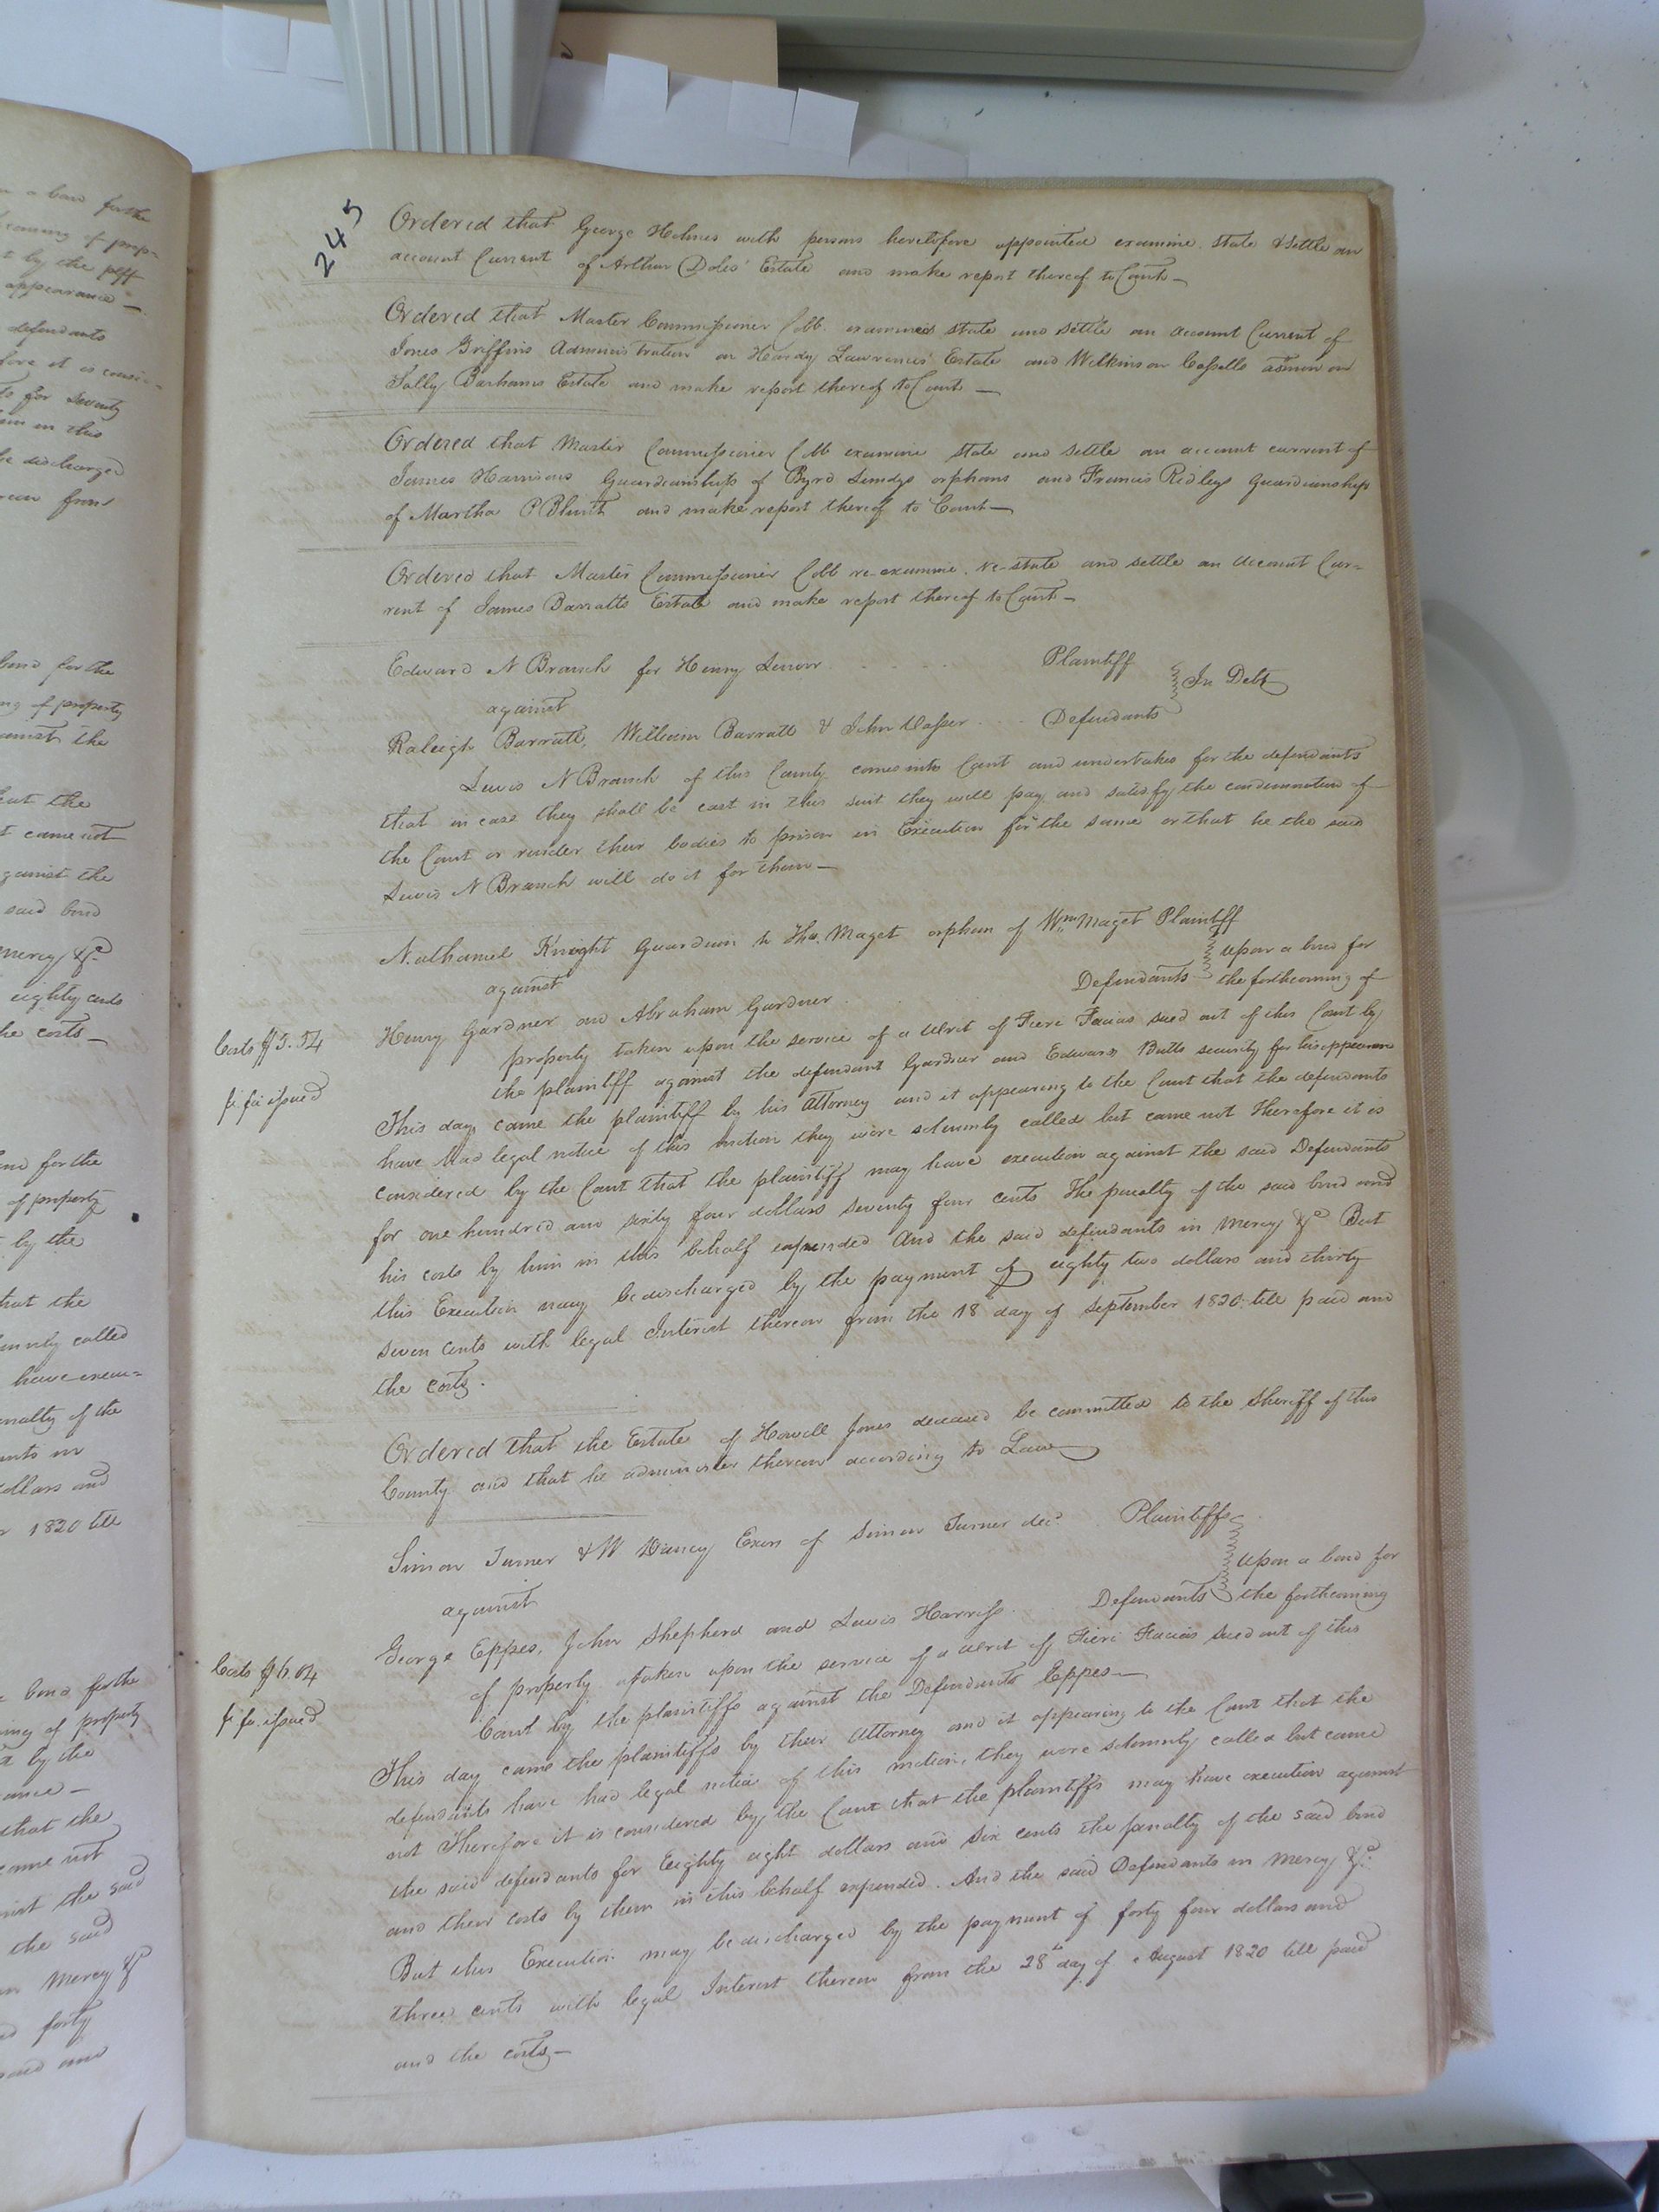 245
Ordered that George Holmes with persons heretofore appointed examine state & settle an
account Current of Arthur Doles' Estate and make report thereof to Court —
Ordered that Master Commissioner Cobb examined state and settle an account Current of
Jones Griffins Administration on Hardy Lawrences' Estate and Wilkinson Capells admn on
Sally Barhams Estate and make report thereof to Court —
Ordered that Master Commissioner Cobb examine state and settle an account current of
James Harrisons Guardianship of Byrd orphans and Francis Ridleys guardianship
of Martha P Blunt and make report thereof to Court —
Ordered that Master Commissioner Cobb re-examine. re-state and settle an account Cur=
rent of James Barratts Estate and make report thereof to Court —
Edward N Branch for Henry Plaintiff
against In Debt
Raleigh Barratt, William Barratt & John Vasser Defendants
Lewis N Branch of this County comes into Court and undertakes for the defendants
that in case they shall be cast in this suit they will pay and satisfy the condemnation of
the Court or render their bodies to prison in Execution for the same or that he the said
Lewis N Branch will do it for them —
Nathaniel Knight Guardian to Tho. Maget orphan of Wm Maget Plaintiff
against upon a bond for
Henry Gardner and Abraham Gardner Defendants the forthcoming of
Costs $5.54
property taken upon the service of a Writ of Fieri Facias sued out of this Court by
fi fa issued
the plaintiff against the defendant Gardner and Edward Butts security for his appearance
This day came the plaintiff by his attorney and it appearing to the Court that the defendants
have had legal notice of this motion they were solemnly called but came not Therefore it is
considered by the Court that the plaintiff may have execution against the said Defendants
for one hundred and sixty four dollars seventy four cents the penalty of the said bond and
his costs by him in this behalf expended And the said defendants in Mercy &c But
this Execution may be discharged by the payment of eighty two dollars and thirty
seven cents with legal Interest thereon from the 18th day of September 1820. till paid and
the costs.
Ordered that the Estate of Howell Jones deceased be committed to the Sheriff of this
County and that he administer thereon according to Law
Simon Turner & W Dancy Exors of Simon Turner decd. Plaintiffs
against upon a bond for
George Eppes, John Shepherd and Lewis Harriss Defendants the forthcoming
Costs $6.04
of property taken upon the service of a Writ of Fieri Facias sued out of this
fi fa. issued
Court by the plaintiffs against the Defendants Eppes —
This day came the plaintiffs by their Attorney and it appearing to the Court that the
defendants have had legal notice of this motion, they were solemnly called but came
not Therefore it is considered by the Court that the plaintiffs may have execution against
the said defendants for Eighty eight dollars and six cents the penalty of the said bond
and their costs by them in this behalf expended. And the said Defendants in Mercy &c.
But this Execution may be discharged by the payment of forty four dollars and
three cents with legal Interest thereon from the 28th day of August 1820 till paid
and the costs —